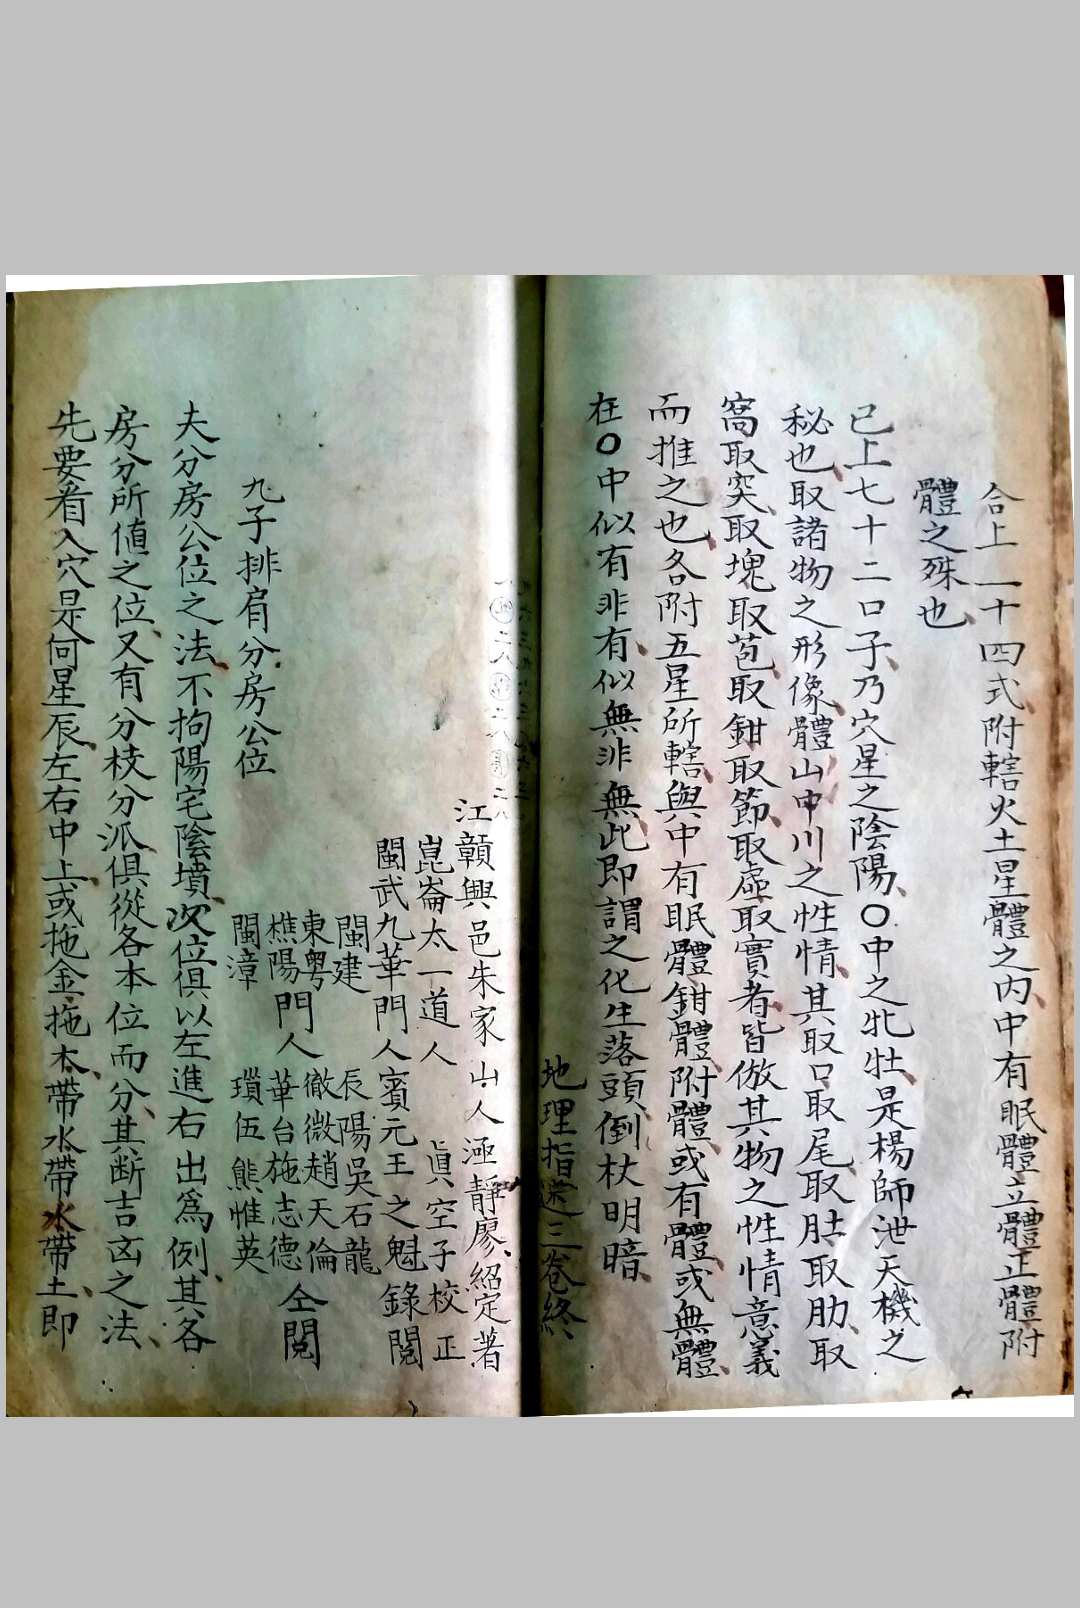 合上二十四式附轄火土星體之内中有眠體立體正體附
體之殊也
已上七十二口子乃穴星之陰陽○中之牝牡是楊師泄天機之
秘也取諸物之形像體山中川之性情其取口取尾取肚取肋取
窩取突取塊取苞取鉗取節取虛取實者皆倣其物之性情意義
而推之也各附五星所轄與中有眠體鉗體附體或有體或無體
在○中似有非有似無非無此即謂之化生落頭倒杖明暗
地理指迷三卷終
江贛興邑朱家山人極靜廖紹定著
崑崙太一道人 眞空子校正
閩武九華門人賓元王之魁錄閲
閩建 辰陽吳石龍
東粤 徹微趙天倫
樵陽門人 華台施志德 仝閲
閩漳 瑣伍熊惟英
九子排肩分房公位
夫分房公位之法不拘陽宅陰墳次位俱以左進右出爲例其各
房分所値之位又有分枝分派俱從各本位而分其断吉㐫之法
先要看入穴是何星辰左右中上或拖金拖木帶水帶火帶土即